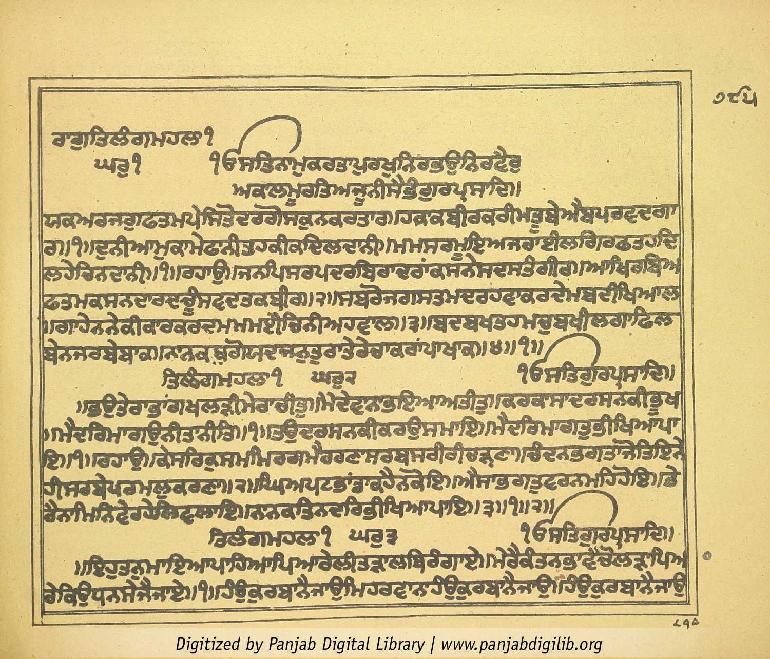 ੭੯੫
ਰਾਗੁਤਿਲੰਗਮਹਲਾ੧
ਘਰੁ੧ ੧ੳਸਤਿਨਾਮੁਕਰਤਾਪੁਰਖੁਨਿਰਭਉਨਿਰਵੈਰੁ
ਅਕਾਲਮੂਰਤਿਅਜੂਨੀਸੈਭੰਗੁਰਪ੍ਰਸਾਦਿ॥
ਯਕਅਰਜਗੁਫਤਮਪੇਸਿਤੋਦਰਗੋਸਕੁਨਕਰਤਾਰ॥ਹਕਾਕਬੀਰਕਰੀਮਤੂਬੇਐਬਪਰਵਦਗਾ
ਰ॥੧॥ਦੁਨੀਆਮੁਕਾਮੇਫਾਨੀਤਹਕੀਕਦਿਲਦਾਨੀ॥ਮਮਸਰਮੂਇਅਜਰਾਈਲਗਿਰਫਤਹਦਿ
ਲਹੇਚਿਨਦਾਨੀ॥੧॥ਰਹਾਉ॥ਜਨਪਿਸਰਪਦਰਬਿਰਾਦਰਾਂਕਸਨੇਸਦਸਤੰਗੀਰ॥ਆਖਿਰਬਿਅ
ਫਤਮਕਸਨਦਾਰਦਚੂੰਸਵਦਤਕਬੀਰ॥੨॥ਸਬਰੋਜਗਸਤਮਦਰਹਵਾਕਰਦੇਮਬਦੀਖਿਆਲ
॥ਗਾਹੇਨਨੇਕੀਕਾਰਕਰਦਮਮਮਈਚਿਨੀਅਹਵਾਲ॥੩॥ਬਦਬਖਤਹਮਚੁਬਖੀਲਗਾਫਿਲ
ਬੇਨਜਰਬੇਬਾਕ॥ਨਾਨਕਬੁਗੋਯਦਜਨੁਤੁਰਾਤੇਰੇਚਾਕਰਾਂਪਾਖਾਕ॥੪॥੧॥
ਤਿਲੰਗਮਹਲਾ੧ ਘਰੁ੨ ੧ੳਸਤਿਗੁਰਪ੍ਰਸਾਦਿ॥
॥ਭਉਤੇਰਾਭਾਂਗਖਲੜੀਮੇਰਾਚੀਤੁ॥ਮੈਦੇਵਾਨਾਭਇਆਅਤੀਤੁ॥ਕਰਕਾਸਾਦਰਸਨਕੀਭੂਖ
॥ਮੈਦਰਿਮਾਗਉਨੀਤਾਨੀਤਿ॥੧॥ਤਉਦਰਸਨਕੀਕਰਉਸਮਾਇ॥ਮੈਦਰਿਮਾਗਤੁਭੀਖਿਆਪਾ
ਇ॥੧॥ਰਹਾਉ॥ਕੇਸਰਿਕੁਸਮਮਿਰਗਮੈਹਰਣਾਸਰਬਸਰੀਰੀਚੜ੍ਹਣਾ॥ਚੰਦਨਭਗਤਾਜੋਤਿਇਨੇ
ਹੀਸਰਬੇਪਰਮਲੁਕਰਣਾ॥੨॥ਘਿਅਪਟਭਾਂਡਾਕਹੈਨਕੋਇ॥ਐਸਾਭਗਤੁਵਰਨਮਹਿਹੋਇ॥ਤੇ
ਰੈਨਾਮਿਨਿਵੇਰਹੇਲਿਵਲਾਇ॥ਨਾਨਕਤਿਨਦਰਿਭੀਖਿਆਪਾਇ॥੩॥੧॥੨॥
ਤਿਲੰਗਮਹਲਾ੧ ਘਰੁ੩ ੧ੳਸਤਿਗੁਰਪ੍ਰਸਾਦਿ॥
॥ਇਹੁਤਨੁਮਾਇਆਪਾਹਿਆਪਿਆਰੇਲੀਤੜਾਲਬਿਰੰਗਾਏ॥ਮੇਰੈਕੰਤਨਭਾਵੈਚੋਲੜਾਪਿਆ
ਰੇਕਿਉਧਨਸੇਜੈਜਾਏ॥੧॥ਹੰਉਕੁਰਬਾਨੈਜਾਉਮਿਹਰਵਾਨਾਹੰਉਕੁਰਬਾਨੈਜਾਉ॥ਹੰਉਕੁਰਬਾਨੈਜਾਉ
Digitized by Panjab Digital Library | www.panjabdigilib.org